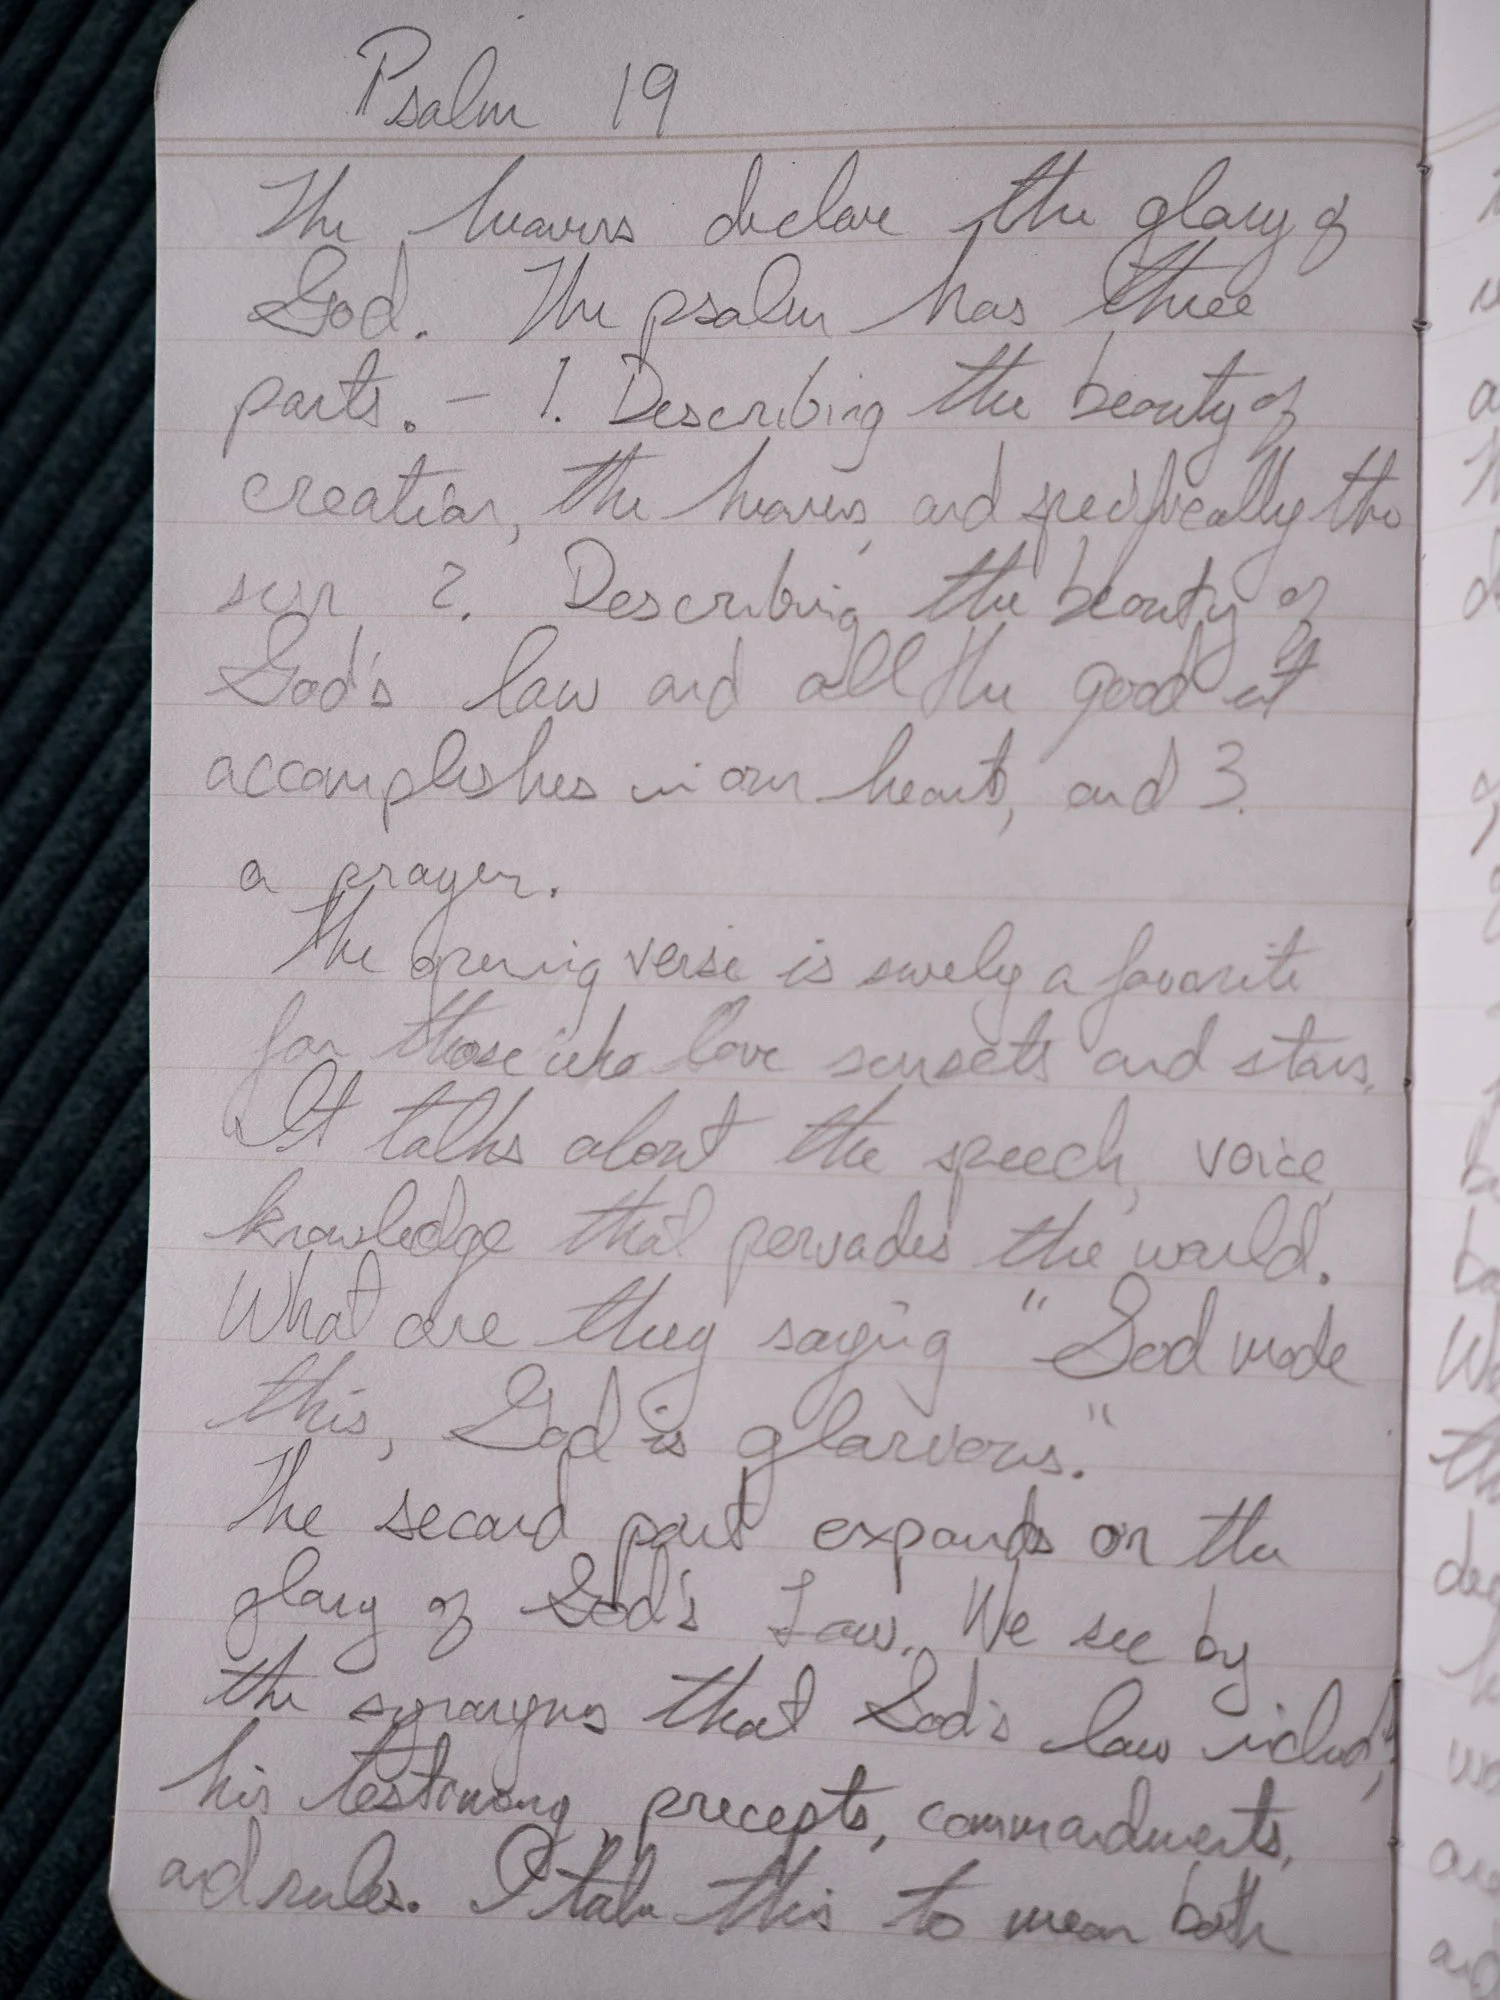 Psalm 19
The heavens declare the glory of
God. The psalm has three
parts. - 1. Describing the beauty of
creation, the heavens, and specifically the
sun 2. Describing the beauty of
God's law and all the good it
accomplishes in our hearts, and 3.
a prayer.
The opening verse is surely a favorite
for those who love sunsets and stars.
It talks about the speech, voice,
knowledge that pervades the world.
What are they saying "God made
this, God is glorious."
The second part expands on the
glory of God's Law. We see by
the synonyms that God's law includes
his testimony, precepts, commandments,
and rules. I take this to mean both